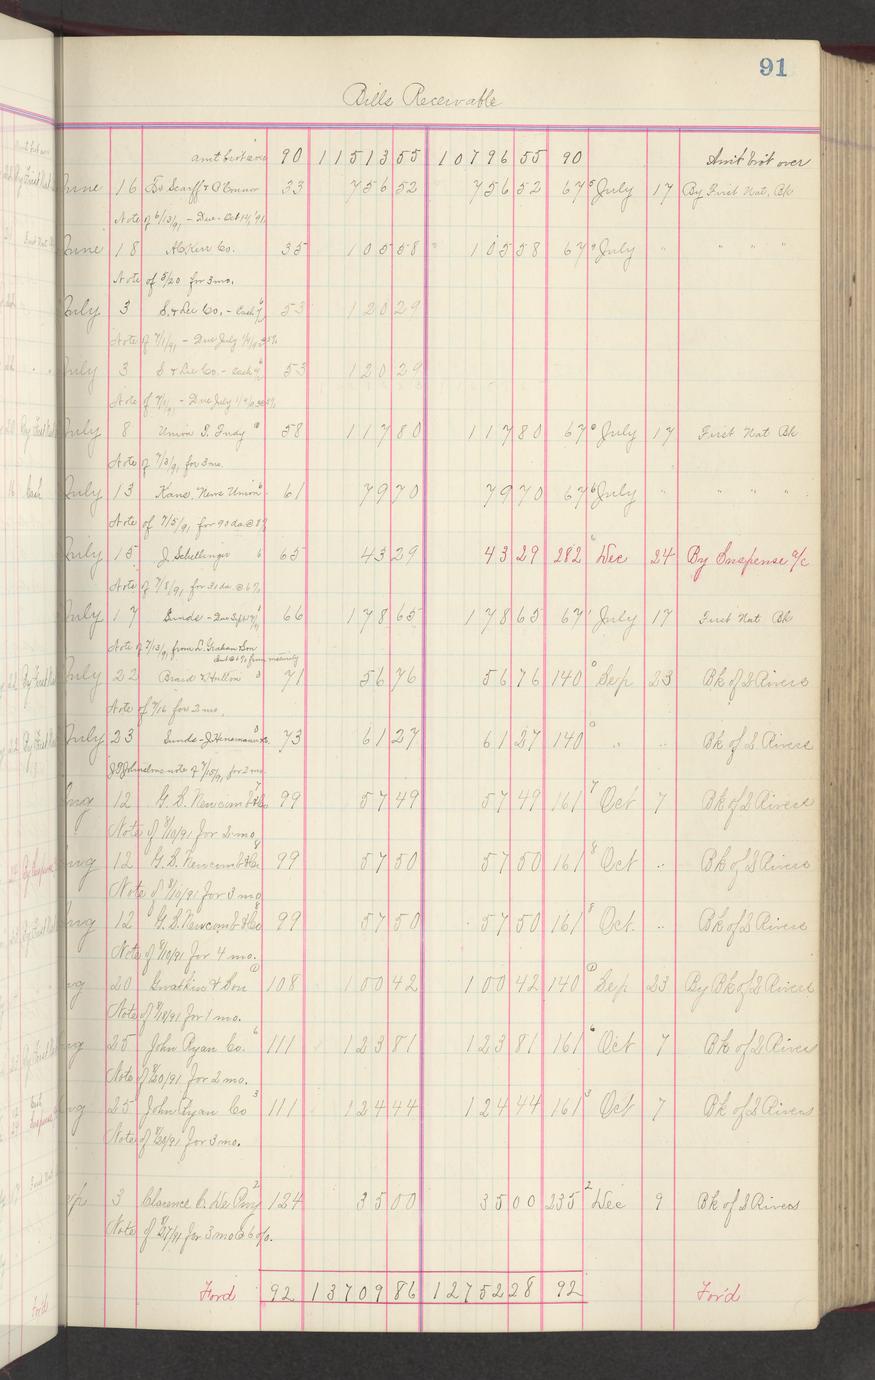 91
Bills Receivable
amt brot over 90 11513 55 10796 55 90 Am't bro't over
June 16 To Scarff & O'Connor 33 756 52 756 52 67 5 July 17 By First Nat. Bk
Note of 6/13/91 - Due - Oct 14, '91
June 18 Co. 35 105 58 105 58 67 9 July " " " "
Note of 5/20 for 3 mo.
July 3 S. & Lee Co. - 6 53 120 29
Note of 7/1/91 - Due July
July 3 S & Lee Co. - 6 53 120 29
Note of 7/1/91 - Due July
July 8 Union S. Indy 58 117 80 117 80 67 0 July 17 First Nat Bk
Note of 7/3/91 for 3 mo.
July 13 Kans. News Union 6 61 79 70 79 70 67 6 July " " " "
Note of 7/5/91 for 90 da @ 8%
July 15 J. Schellinger 6 65 43 29 43 29 282 6 Dec 24 By Suspense a/c
Note of 7/8/91 for 31 da @ 6%
July 17 Sunds - Due 66 178 65 178 65 67 1 July 17 First Nat Bk
Note of 7/13/91 from L. Graham & Son
from maturity
July 22 Braid & Hutton 3 71 56 76 56 76 140 0 Sep 23 Bk of 3 Rivers
Note of 7/16 for 2 mo.
July 23 Sunds - J. Heinemann 73 61 27 61 27 140 0 " " Bk of 3 Rivers
note of 7/15/91 for 2 mo
Aug 12 G. B. Newcomb & Co 7 99 57 49 57 49 161 7 Oct 7 Bk of 3 Rivers
Note of 8/10/91 for 2 mo
Aug 12 G. B. Newcomb & Co 8 99 57 50 57 50 161 8 Oct " Bk of 3 Rivers
Note of 8/10/91 for 3 mo
Aug 12 G. B. Newcomb & Co 8 99 57 50 57 50 161 8 Oct. " Bk of 3 Rivers
Note of 8/10/91 for 4 mo.
Aug 20 Gwatkin & Son 1 108 100 42 100 42 140 1 Sep 23 By Bk of 3 Rivers
Note of 8/18/91 for 1 mo.
Aug 25 John Ryan Co. 6 111 123 81 123 81 161 6 Oct 7 Bk of 3 Rivers
Note of 8/20/91 for 2 mo.
Aug 25 John Ryan Co 3 111 124 44 124 44 161 3 Oct 7 Bk of 3 Rivers
Note of 8/20/91 for 3 mo.
Sep 3 Clarence C. De Puy 2 124 35 00 35 00 235 2 Dec 9 Bk of 3 Rivers
Note of 8/27/91 for 3 mo @ 6 %.
Ford 92 13709 86 12752 28 92 For'd